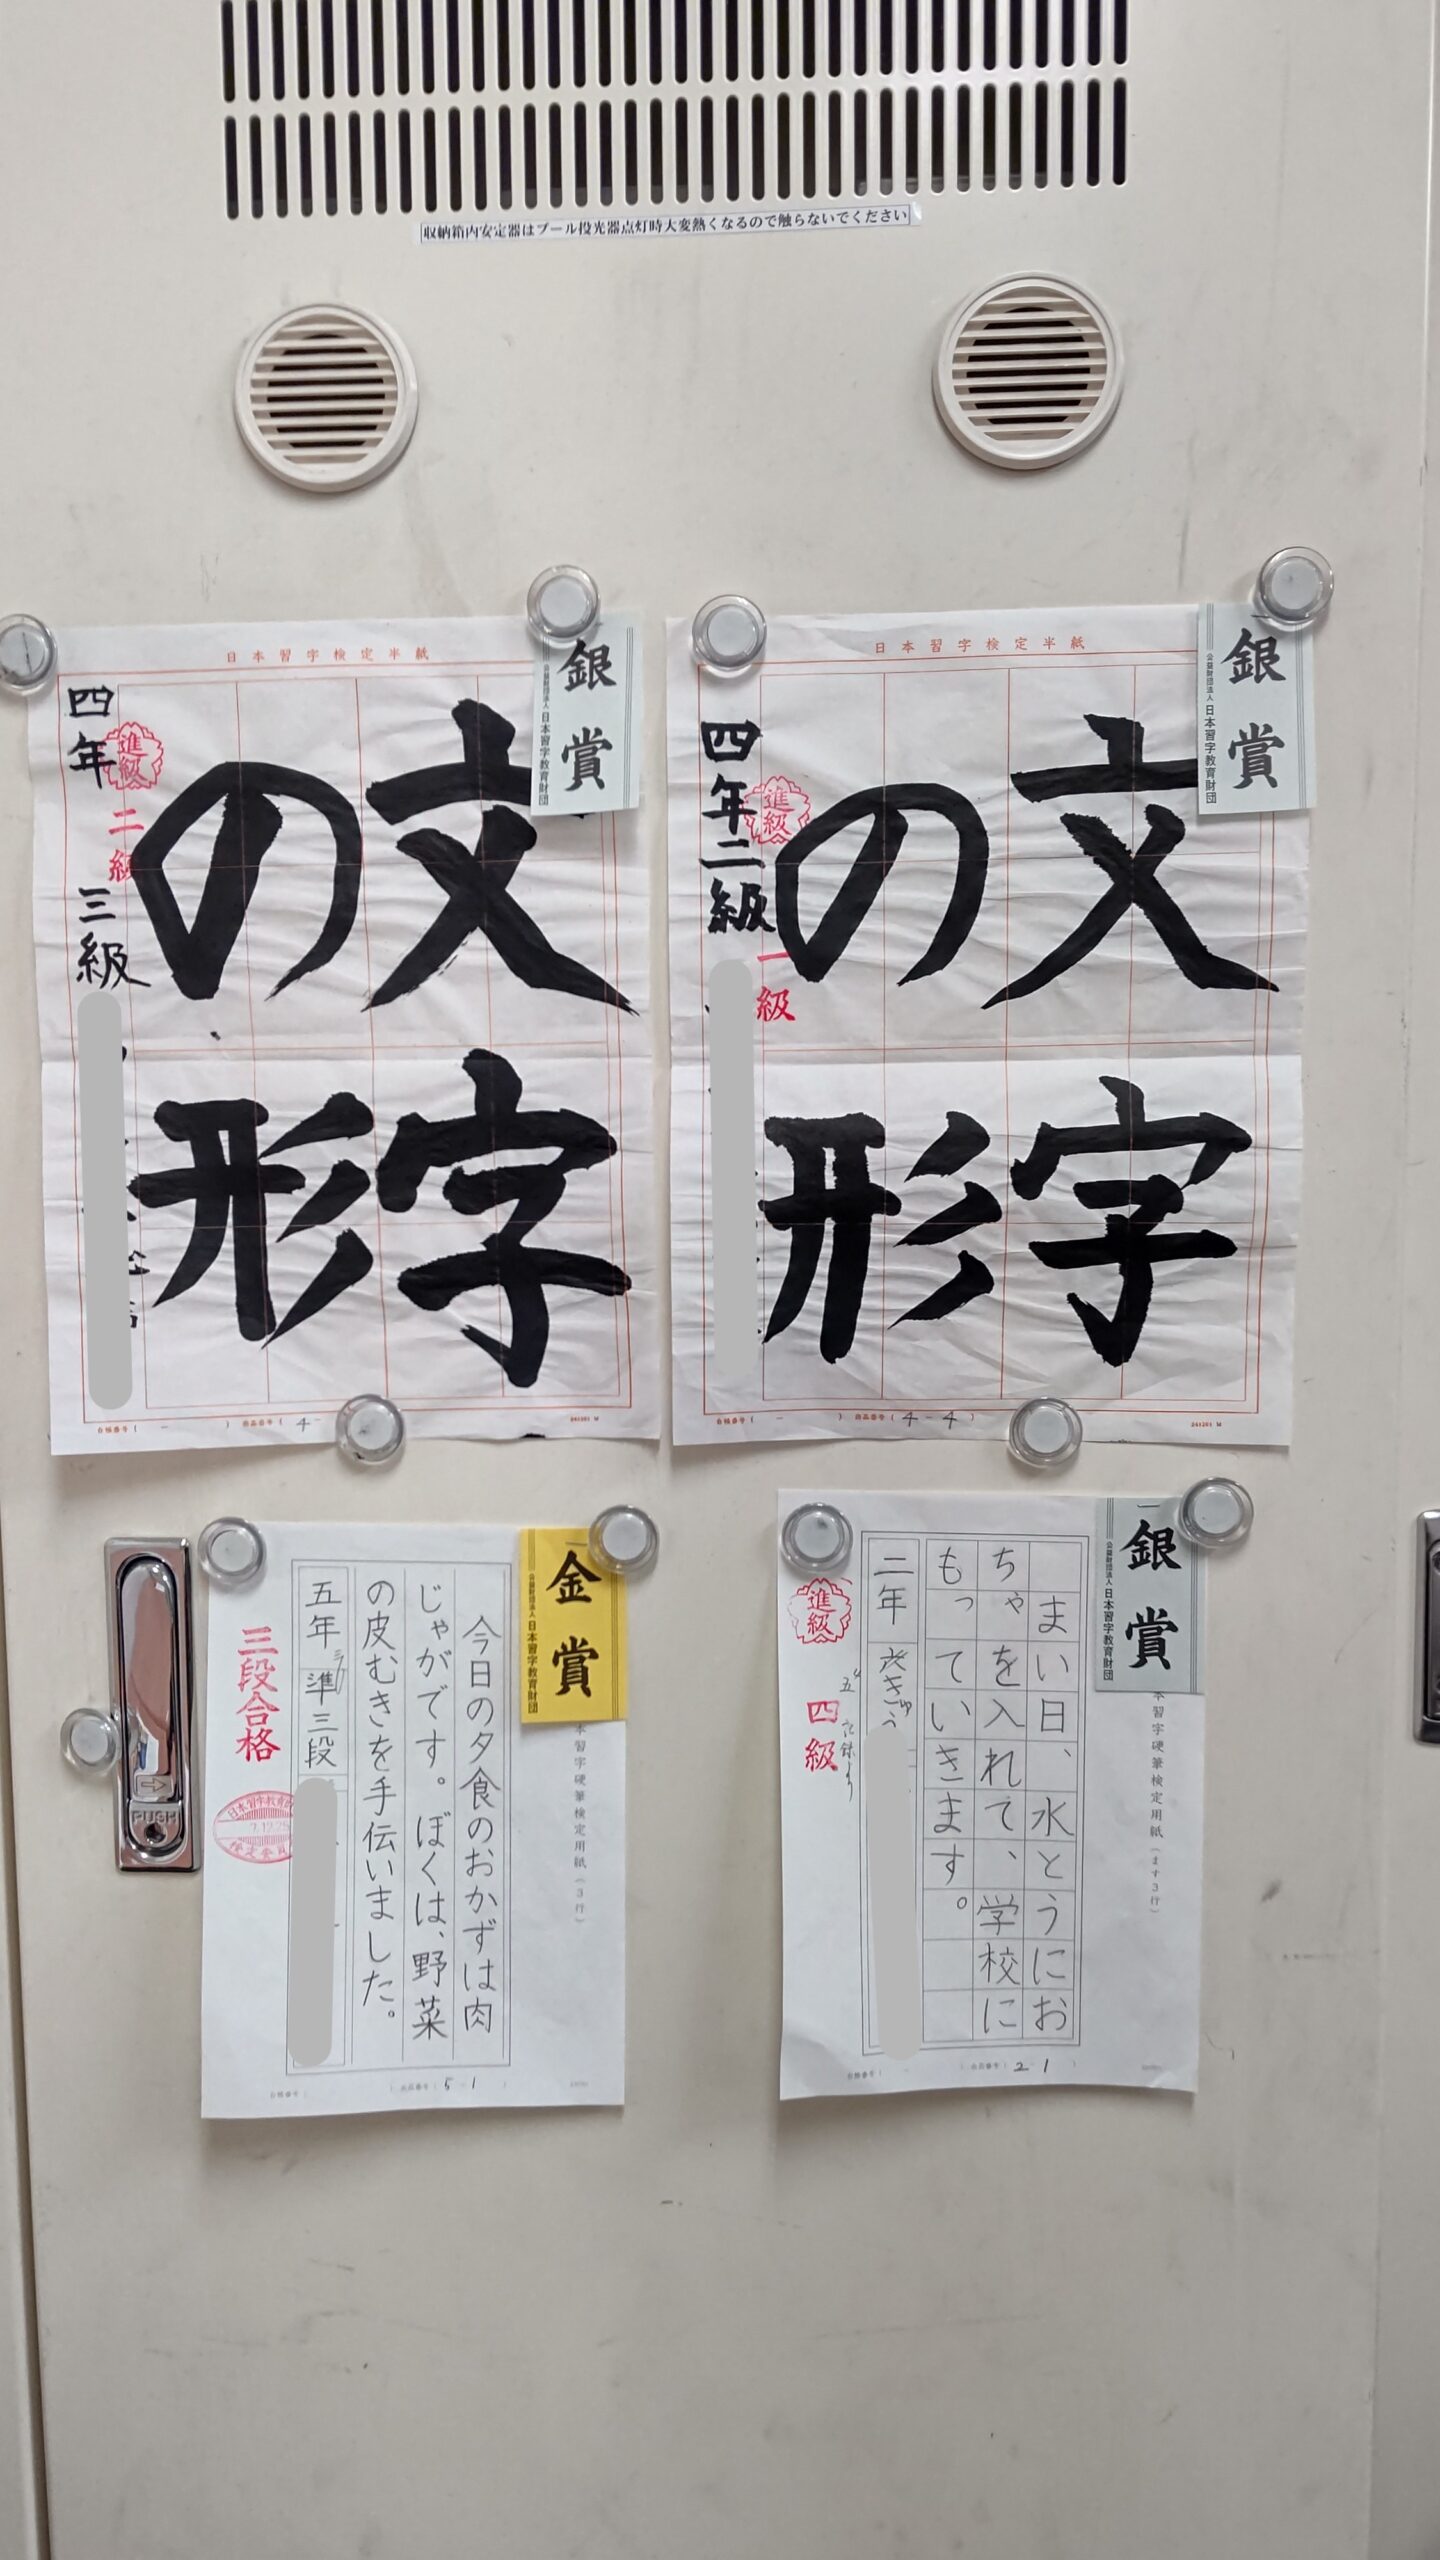 収納箱内安定器はプール投光器点灯時大変熱くなるので触らないでください
日本習字検定半紙
銀賞
公益財団法人日本習字教育財団
文字
の形
四年 三級
進級
二級
出品番号( 4-
日本習字検定半紙
銀賞
公益財団法人日本習字教育財団
文字
の形
四年二級
進級
一級
出品番号( 4-4 )
金賞
公益財団法人日本習字教育財団
習字硬筆検定用紙(3行)
今日の夕食のおかずは肉
じゃがです。ぼくは、野菜
の皮むきを手伝いました。
五年 準三段
三段合格
出品番号( 5-1 )
銀賞
公益財団法人日本習字教育財団
本習字硬筆検定用紙(ます3行)
まい日、水とうにお
ちゃを入れて、学校に
もっていきます。
二年
進級
四級
出品番号( 2-1 )
PUSH